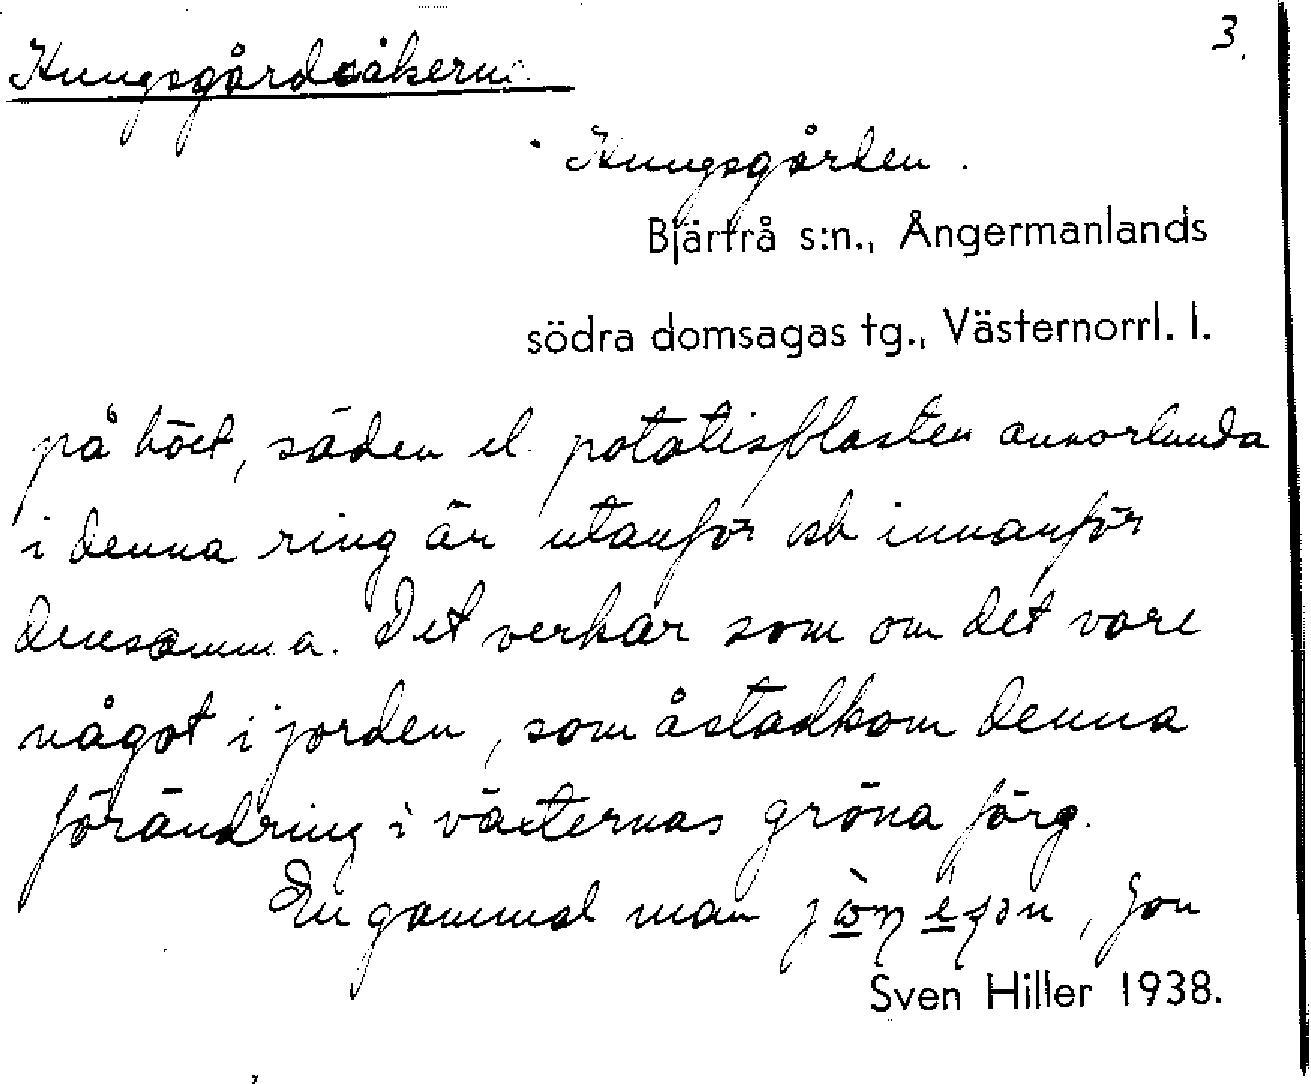 3.
Kungsgårdsåkerna
Kungsgården.
Bjärtrå s:n., Ångermanlands
södra domsagas tg., Västernorrl. l.
på höet, säden el. potatisblasten annorlunda
i denna ring än utanför och innanför
densamma. Det verkar som om det vore
något i jorden, som åstadkom denna
förändring i växternas gröna färg.
En gammal man , Jon
Sven Hiller 1938.